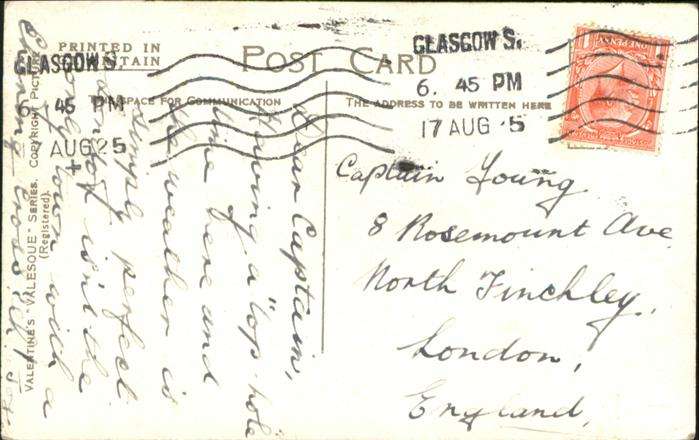 PRINTED IN
BRITAIN
POST CARD
SPACE FOR COMMUNICATION
THE ADDRESS TO BE WRITTEN HERE
GLASGOW S.
6. 45 PM
17 AUG 25
GLASGOW S.
6 45 PM
AUG 25
ONE PENNY
VALENTINE'S "VALESQUE" SERIES. COPYRIGHT PICTURE
(Registered).
Dear Captain,
Having a "top-hole"
time here and
the weather is
simply perfect
London isn't the
only town with a
Charing Cross is it?
Captain Young
8 Rosemount Ave
North Finchley,
London,
England,